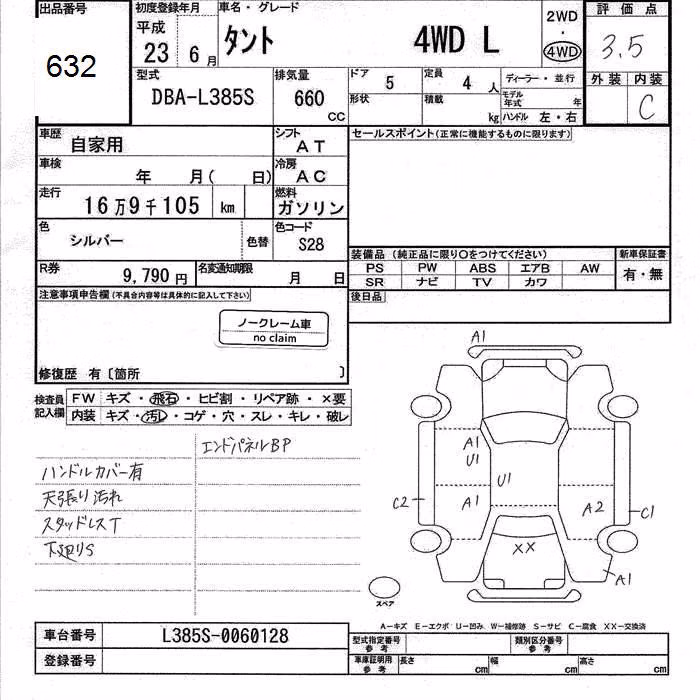 出品番号
632
初度登録年月
平成
23 6月
車名・グレード
タント 4WD L
2WD
・
4WD
評価点
3.5
外装 内装
C
型式
DBA-L385S
排気量
660
CC
ドア
5
定員
4 人
形状
積載
kg
ディーラー・並行
モデル年式 年
ハンドル 左・右
車歴
自家用
シフト
AT
車検
年 月( 日)
冷房
AC
走行
16万9千105 km
燃料
ガソリン
色
シルバー
色替
色コード
S28
R券
9,790円
名変通知期限
月 日
セールスポイント(正常に機能するものに限ります)
装備品 (純正品に限り〇をつけてください)
PS PW ABS エアB AW
SR ナビ TV カワ
新車保証書
有・無
後日品
注意事項申告欄(不具合内容等は具体的に記入して下さい)
ノークレーム車
no claim
修復歴 有〔箇所 〕
検査員記入欄
FW キズ・飛石・ヒビ割・リペア跡・×要
内装 キズ・汚レ・コゲ・穴・スレ・キレ・破レ
エンドパネルBP
ハンドルカバー有
天張り汚れ
スタッドレスT
下廻りS
A1
A1
U1
U1
A1
C2
A2
C1
XX
A1
スペア
A-キズ E-エクボ U-凹み W-補修跡 S-サビ C-腐食 XX-交換済
車台番号
L385S-0060128
登録番号
型式指定番号
参考
類別区分番号
参考
車庫証明用
参考
長さ cm 幅 cm 高さ cm